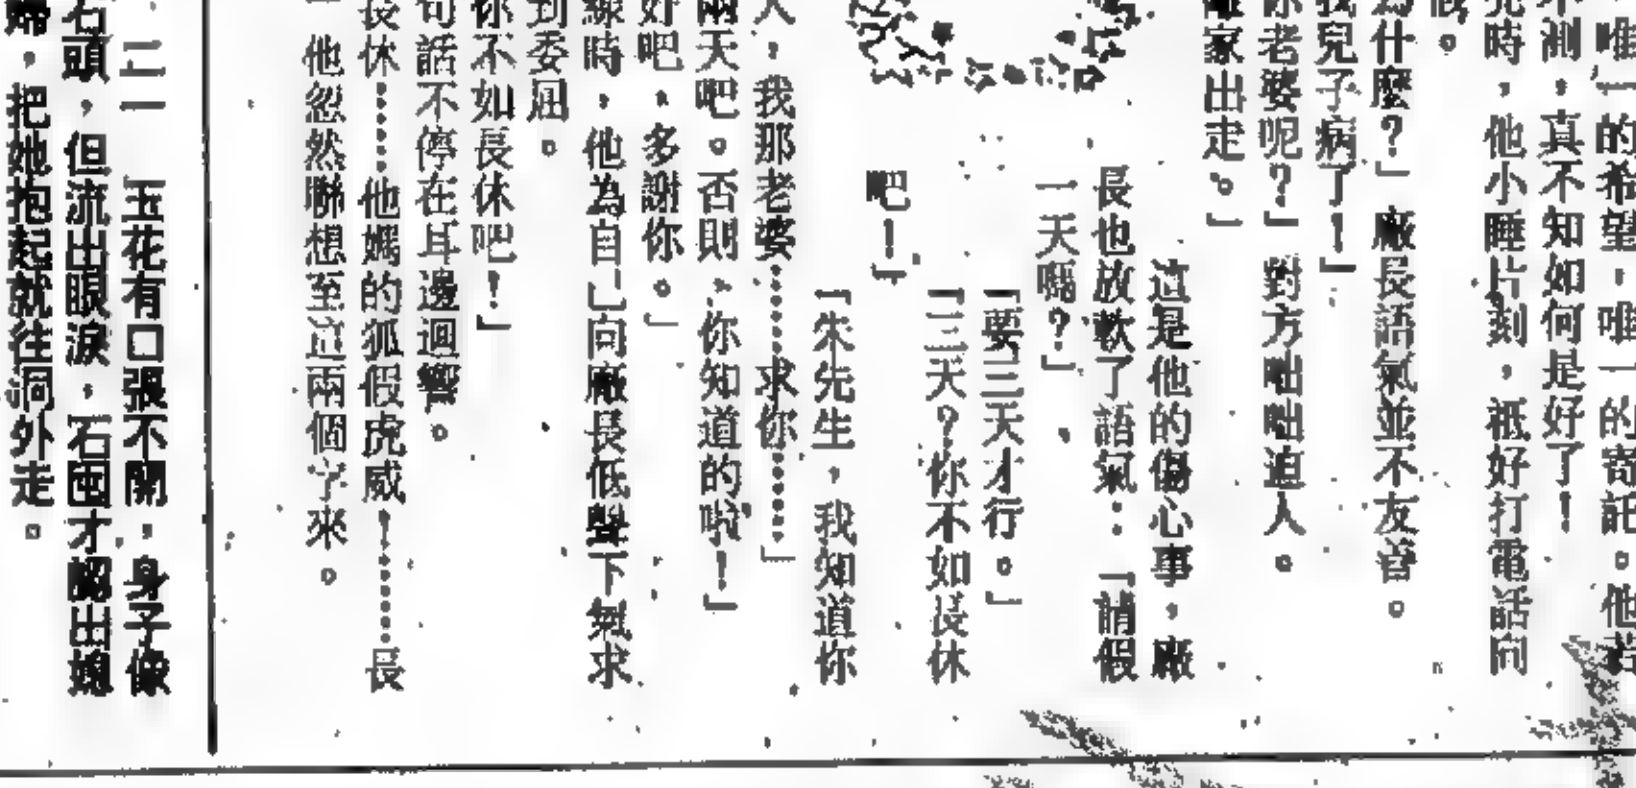 唯一的希望,唯一的寄託。他若
不測,真不知如何是好了!
時,他小睡片刻,祗好打電話向
假。
為什麼?」廠長語氣並不友善。
我兒子病了!」
你老婆呢?」對方咄咄迫人。
離家出走。」
這是他的傷心事,廠
長也放軟了語氣:「請假
一天嗎?」
「要三天才行。」
「三天?你不如長休
吧!」
「朱先生,我知道你
人,我那老婆……求你……」
兩天吧。否則,你知道的啦!」
好吧,多謝你。」
線時,他為自向廠長低聲下氣求
到委屈。
你不如長休吧!」
句話不停在耳邊迴響。
長休……他媽的狐假虎威!……長
他忽然聯想至這兩個字來。
二一 玉花有口張不開,身子像
石頭,但流出眼淚,石囤才認出媳
婦,把她抱起就往洞外走。